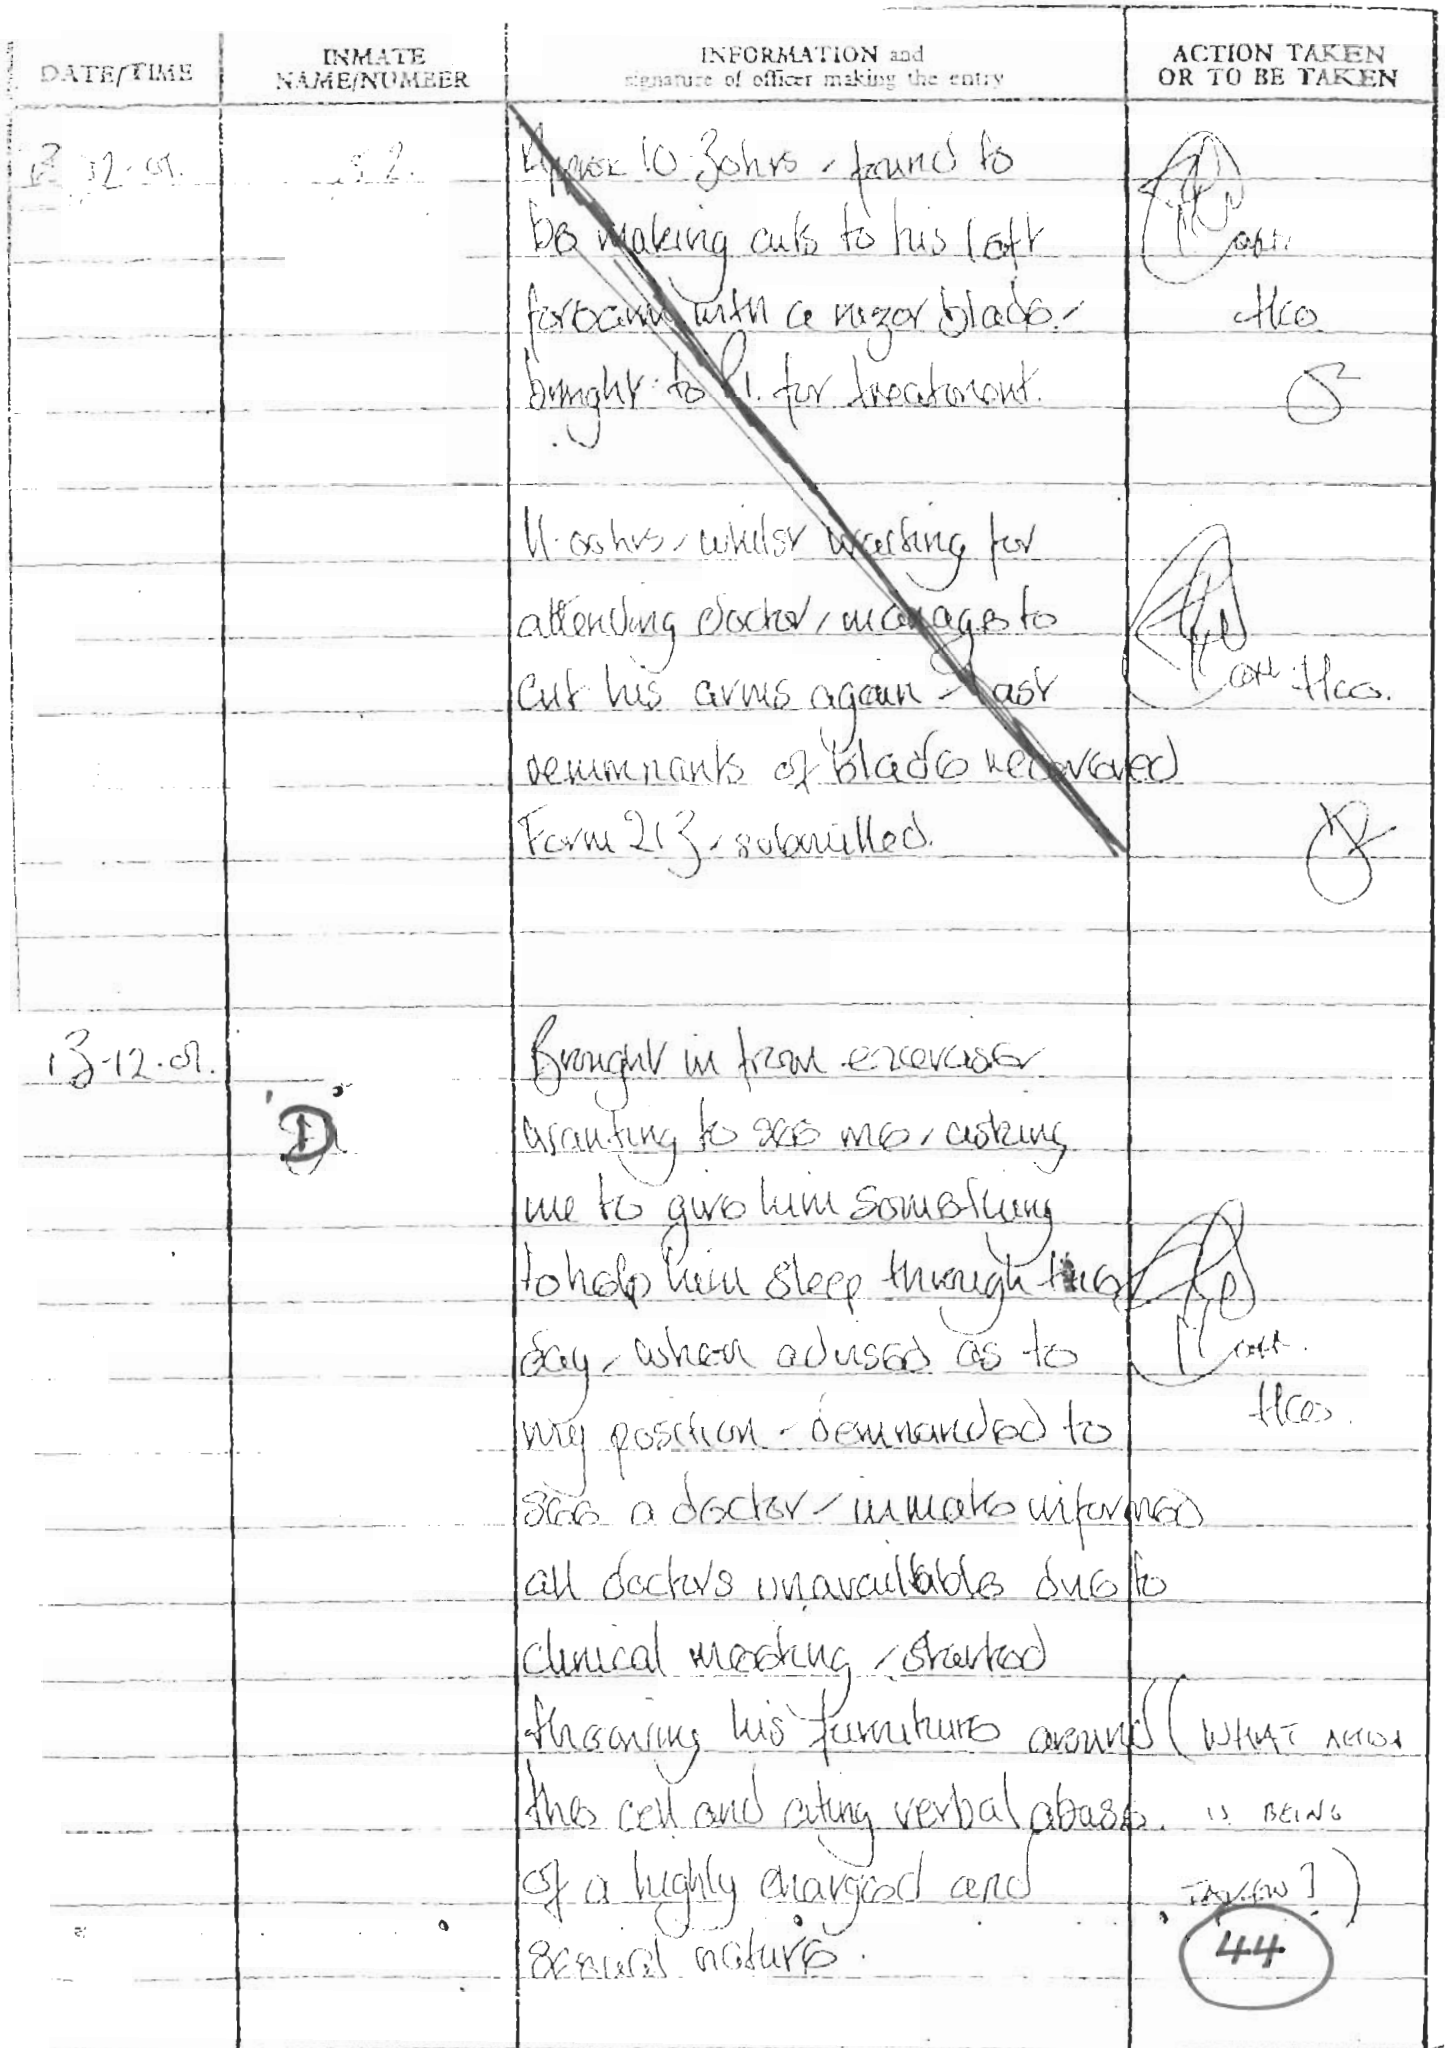 DATE/TIME INMATE NAME/NUMBER INFORMATION and signature of officer making the entry ACTION TAKEN OR TO BE TAKEN
12.01. 52. Approx 10.30hrs - found to
be making cuts to his left
forearm with a razor blade -
HCO
brought to for treatment.
11.00hrs - whilst waiting for
attending doctor, manages to
cut his arms again - last
HCO.
remmnants of blade recovered
Form 213 - submitted.
13.12.01. Brought in from excerciser
"D" wanting to see me, asking
me to give him something
to help him sleep through the
day, when advised as to
my position - demnanded to
HCO.
see a doctor - inmate informed
all doctors unavailable due to
clinical meeting - started
throwing his furniture around (WHAT ACTION
the cell and citing verbal abuse. IS BEING
of a highly charged and TAKEN?)
sexual nature. 44